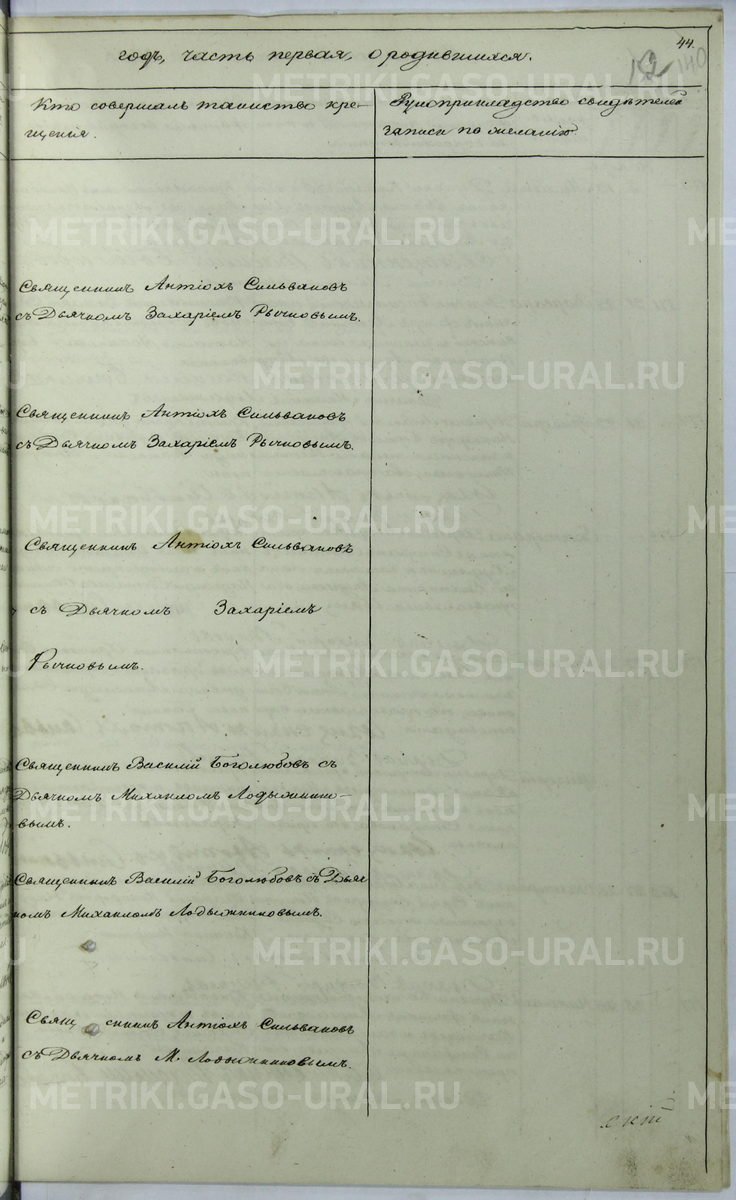 44.
годъ, часть первая, о родившихся.
12 140
Кто совершалъ таинство кре-
щенія.
Рукоприкладство свидѣтелей
записи по желанію
Священникъ Антіохъ Сильвановъ
съ Дьячкомъ Захаріемъ Рычковымъ.
Священникъ Антіохъ Сильвановъ
съ Дьячкомъ Захаріемъ Рычковымъ.
Священникъ Антіохъ Сильвановъ
съ Дьячкомъ Захаріемъ
Рычковымъ.
Священникъ Василій Боголюбовъ съ
Дьячкомъ Михаиломъ Лодыжнико-
вымъ.
Священникъ Василій Боголюбовъ съ Дьяч
комъ Михаиломъ Лодыжниковымъ.
Священникъ Антіохъ Сильвановъ
съ Дьячкомъ М. Лодыжниковымъ.
METRIKI.GASO-URAL.RU